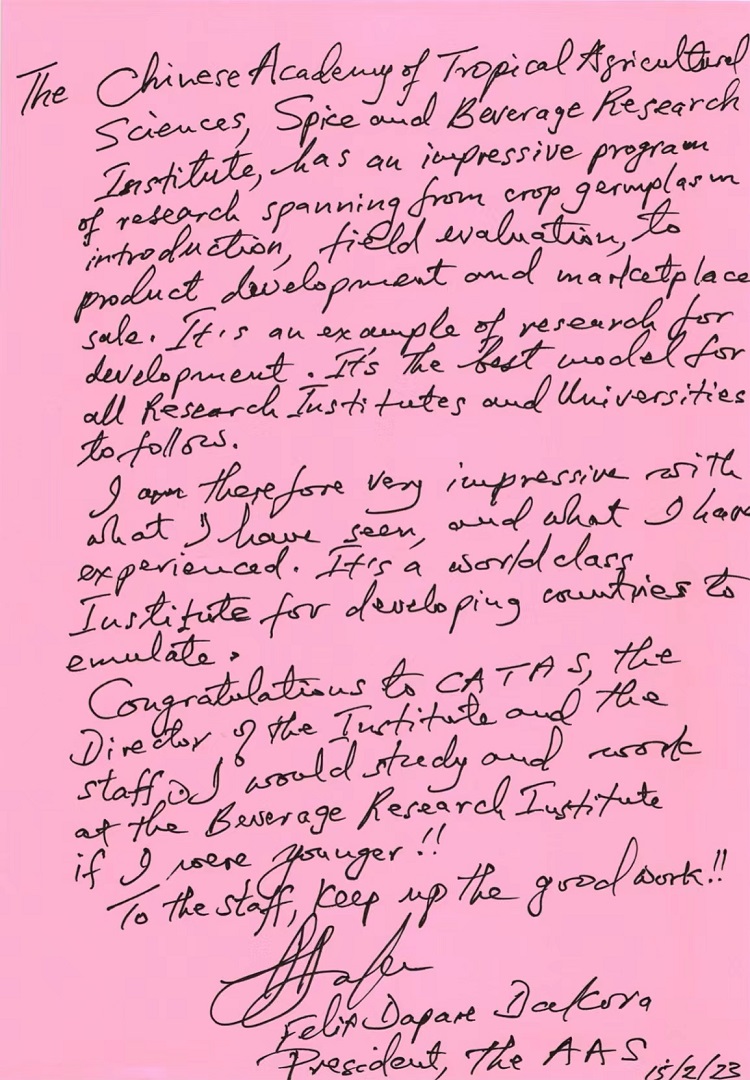 The Chinese Academy of Tropical Agricultural
Sciences, Spice and Beverage Research
Institute, has an impressive program
of research spanning from crop germplasm
introduction, field evaluation, to
product development and marketplace
sale. It's an example of research for
development. It's the best model for
all Research Institutes and Universities
to follow.
I am therefore very impressive with
what I have seen, and what I have
experienced. It's a world class
Institute for developing countries to
emulate.
Congratulations to CATAS, the
Director of the Institute and the
staff. I would study and work
at the Beverage Research Institute
if I were younger!!
To the staff, keep up the good work!!
Felix Dapare Dakora
President, The AAS 15/2/23